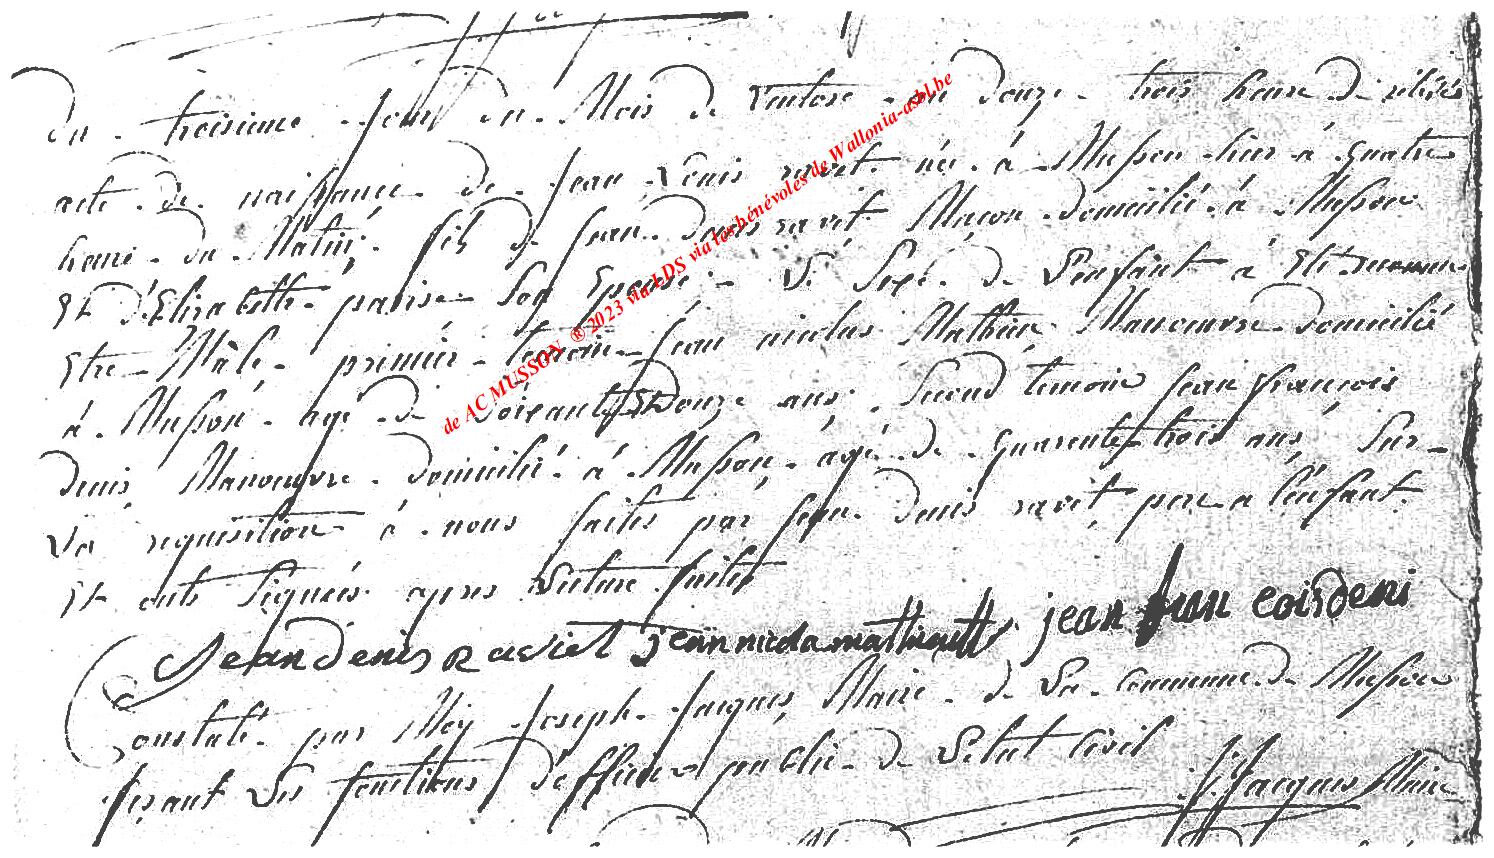 du troisieme jour du Mois de Ventose an douze trois heure de relevés
acte de naissance de Jean Denis ravet né à Musson hier à quatre
heure du Matin, fils de Jean denis ravet Maçon domicilié à Musson
Et d'Elizabette son Epouse Le Sexe de L'enfant a Eté reconnu
Etre Mâle premier temoin Jean nicolas Mathieu Manoeuvre domicilié
à Musson agé de Soixante Et Douze ans, Second temoin Jean françois
denis Manoeuvre domicilié à Musson, agé de quarente trois ans Sur
La requisition à nous faites par Jean denis ravet pere a l'enfant
Et onts Signées apres Lecture faites
Jean denis Raviet jean nicola mathieu jean fran coisdeni
Constaté par Moy Joseph Jacques Maire de La Commune de Musson
fesant Les fonctions d'officier public de L'etat Civil
J: Jacques Maire
de AC MUSSON ® 2023 via LDS via les bénévoles de Wallonia-asbl.be